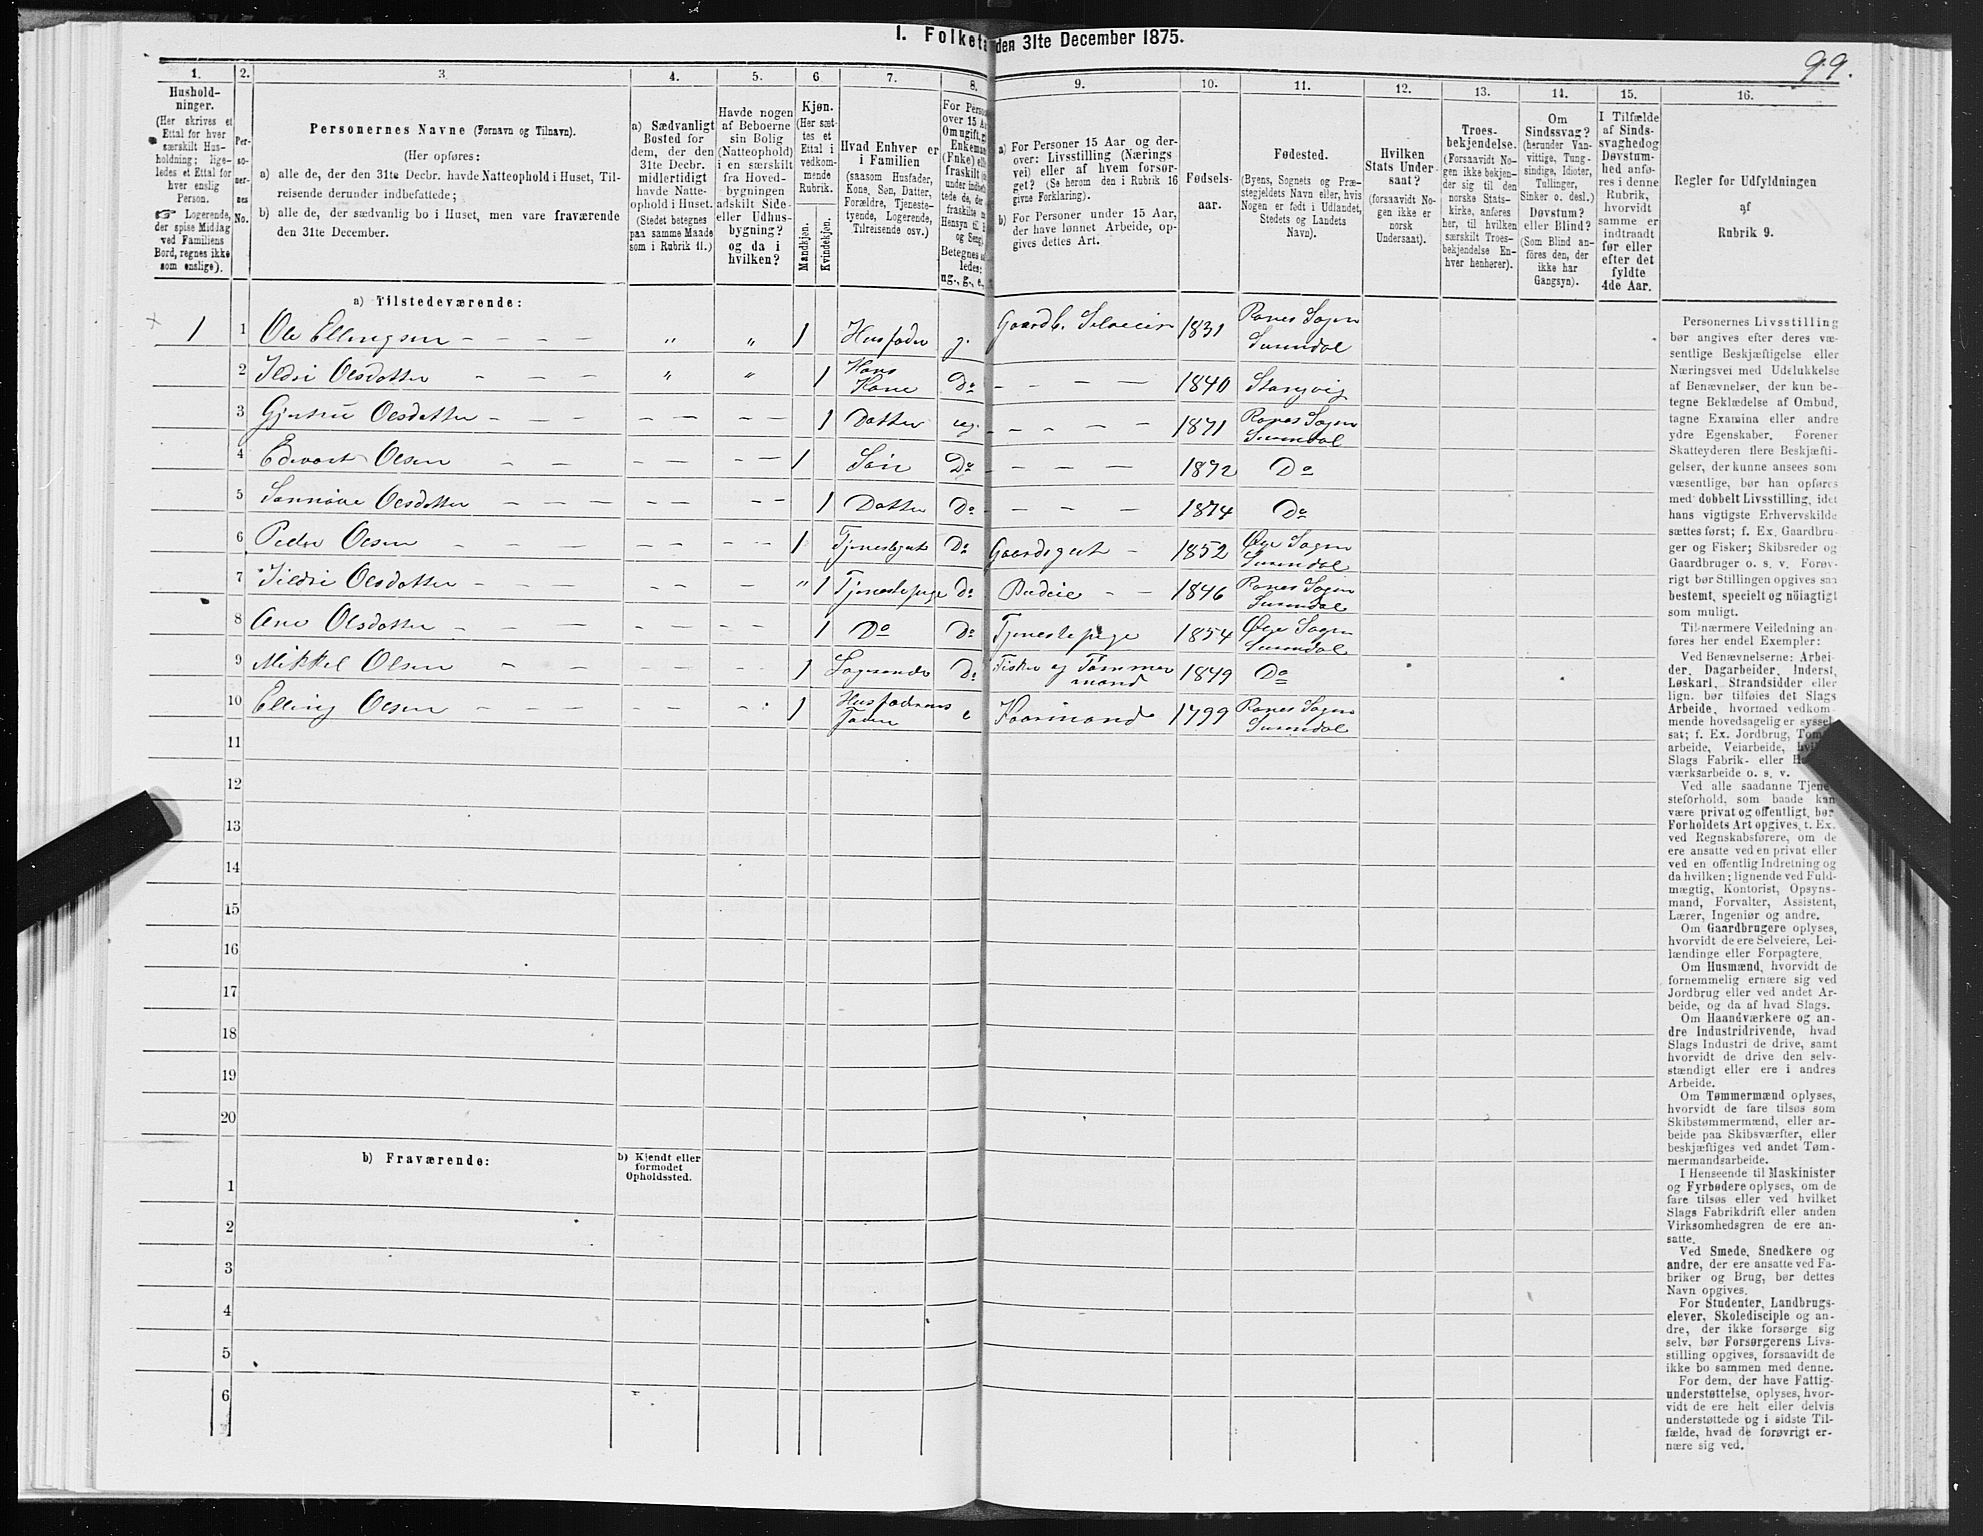 I. Folketæ den 31te December 1875.
99.
1. 2. 3. 4. 5. 6 7. 8. 9. 10. 11. 12. 13. 14. 15. 16.
Hushold-
ninger.
(Her skrives et
Ettal for hver
særskilt Hus-
holdning; lige-
ledes et Ettal for
hver enslig
Person.
☞ Logerende,
der spise Middag
ved Familiens
Bord, regnes ikke
som enslige).
Per-
so-
ner-
nes
No.
Personernes Navne (Fornavn og Tilnavn).
(Her opføres:
a) alle de, der den 31te Decbr. havde Natteophold i Huset, Til-
reisende derunder indbefattede;
b) alle de, der sædvanlig bo i Huset, men vare fraværende
den 31te December.
a) Sædvanligt
Bosted for
dem, der den
31te Decbr.
midlertidigt
havde Natte-
ophold i Huset.
(Stedet betegnes
paa samme Maade
som i Rubrik 11.)
Havde nogen
af Beboerne
sin Bolig
(Natteophold)
i en særskilt
fra Hoved-
bygningen
adskilt Side-
eller Udhus-
bygning?
og da i
hvilken?
Kjøn.
(Her sæt-
tes et
Ettal i
vedkom-
mende
Rubrik.
Mandkjøn.
Kvindekjøn.
Hvad Enhver er
i Familien
(saasom Husfader,
Kone, Søn, Datter,
Forældre, Tjeneste-
tyende, Logerende,
Tilreisende osv.)
For Perso
over 15 A
Om ugift, g
Enkeman
(Fnke) elle
fraskilt (
under indbe
tede de, der
fraskilte m
Hensyn til
og Seng).
Betegnes s
ledes:
ug., g., e,
a) For Personer 15 Aar og der-
over: Livsstilling (Nærings
vei) eller af hvem forsør-
get? (Se herom den i Rubrik 16
givne Forklaring).
b) For Personer under 15 Aar,
der have lønnet Arbeide, op-
gives dettes Art.
Fødsels-
aar.
Fødested.
(Byens, Sognets og Præ-
stegjeldets Navn eller, hvis
Nogen er født i Udlandet,
Stedets og Landets
Navn).
Hvilken
Stats Under-
saat?
(forsaavidt No-
gen ikke er
norsk
Undersaat).
Troes-
bekjendelse.
(Forsaavidt No-
gen ikke bekjen-
der sig til den
norske Stats-
kirke, anføres
her, til hvilken
særskilt Troes-
bekjendelse En-
hver henhører).
Om
Sindssvag?
(herunder Van-
vittige, Tung-
sindige, Idioter,
Tullinger,
Sinker o. desl.)
Døvstum?
eller Blind?
(Som Blind an-
føres den, der
ikke har
Gangsyn).
I Tilfælde
af Sinds-
svaghed og
Døvstum-
hed anfø-
res i denne
Rubrik,
hvorvidt
samme er
indtraadt
før eller
efter det
fyldte
4de Aar.
Regler for Udfyldningen
af
Rubrik 9.
a) Tilstedeværende:
1 1 Ole Ellingsen - - - - " " 1 Husfader g. Gaardb. Selveier 1831 Ranes Sogn Surendal
2 Ildri Olsdatter - - - " " 1 Hans Kone Do - - - - 1840 Stangvig
3 Gjertru Olsdatter - - - - - - - 1 Datter ug. - - - - - 1871 Ranes Sogn Surendal
4 Edvart Olsen - - - - - - - 1 Søn Do - - - - 1872 Do
5 Sannøve Olsdatter - - - - - - - 1 Datter Do - - - - 1874 Do
6 Peder Olsen - - - - - - - - 1 Tjenestegut Do Gaardsgut - 1852 Øye Sogn Surendal
7 Ildri Olsdatter - - - - - - - - " 1 Tjenestepige do Budeie - - 1846 Ranes Sogn Surendal
8 Ane Olsdatter - - - - - - - - 1 Do Do Tjenestepige 1854 Øye Sogn Surendal
9 Mikkel Olsen - - - - - - - 1 Logerende Do Fisker og Tømmermand 1849 Do
10 Elling Olsen - - - - - - - - 1 Husfaderens Fader e Kaarmand 1799 Ranes Sogn Surendal
11
12
13
14
15
16
17
18
19
20
b) Fraværende:
b) Kjendt eller
formodet
Opholdssted.
1
2
3
4
5
6
Personernes Livsstilling
bør angives efter deres væ-
sentlige Beskjæftigelse eller
Næringsvei med Udelukkelse
af Benævnelser, der kun be-
tegne Beklædelse af Ombud,
tagne Examina eller andre
ydre Egenskaber. Forener
Skatteyderen flere Beskjæfti-
gelser, der kunne ansees som
væsentlige, bør han opføres
med dobbelt Livsstilling, idet
hans vigtigste Erhvervskilde
sættes først; f. Ex. Gaardbru-
ger og Fisker; Skibsreder og
Gaardbruger o. s. v. Forøv-
rigt bør Stillingen opgives saa
bestemt, specielt og nöiagtigt
som muligt.
Til nærmere Veiledning an-
føres her endel Exempler:
Ved Benævnelserne: Arbei-
der, Dagarbeider, Inderst,
Løskarl, Strandsidder eller
lign. bør tilføies det Slags
Arbeide, hvormed vedkom-
mende hovedsagelig er syssel-
sat; f. Ex. Jordbrug, Tom
arbeide, Veiarbeide, hvil
Slags Fabrik- eller H
værksarbeide o. s. v.
Ved alle saadanne Tjene
steforhold, som baade kan
være privat og offentligt, bør
Forholdets Art opgives, t. Ex.
ved Regnskabsførere, om de
ere ansatte ved en privat eller
ved en offentlig Indretning og
da hvilken; lignende ved Fuld-
mægtig, Kontorist, Opsyns-
mand, Forvalter, Assistent,
Lærer, Ingeniør og andre.
Om Gaardbrugere oplyses,
hvorvidt de ere Selveiere, Lei-
lændinge eller Forpagtere.
Om Husmænd, hvorvidt de
fornemmelig ernære sig ved
Jordbrug eller ved andet Ar-
beide, og da af hvad Slags.
Om Haandværkere og an-
dre Industridrivende, hvad
Slags Industri de drive, samt
hvorvidt de drive den selv-
stændigt eller ere i andres
Arbeide.
Om Tømmermænd oplyses,
hvorvidt de fare tilsøs som
Skibstømmermænd, eller ar-
beide paa Skibsværfter, eller
beskjæftiges ved andet Tøm-
mermandsarbeide.
I Henseende til Maskinister
og Fyrbødere oplyses, om de
fare tilsøs eller ved hvilket
Slags Fabrikdrift eller anden
Virksomhedsgren de ere an-
satte.
Ved Smede, Snedkere og
andre, der ere ansatte ved Fa-
briker og Brug, bør dettes
Navn opgives.
For Studenter, Landbrugs-
elever, Skoledisciple og an-
dre, der ikke forsørge sig
selv, bør Forsørgerens Livs-
stilling opgives, forsaavidt de
ikke bo sammen med denne.
For dem, der have Fattig-
understøttelse, oplyses, hvor-
vidt de ere helt eller delvis
understøttede og i sidste Til-
fælde, hvad de forøvrigt er-
nære sig ved.